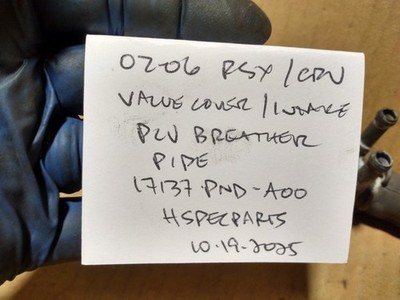 02-06 RSX / CRV
VALVE COVER / INTAKE
PCV BREATHER
PIPE
17137-PND-A00
HSPECPARTS
10-19-2025